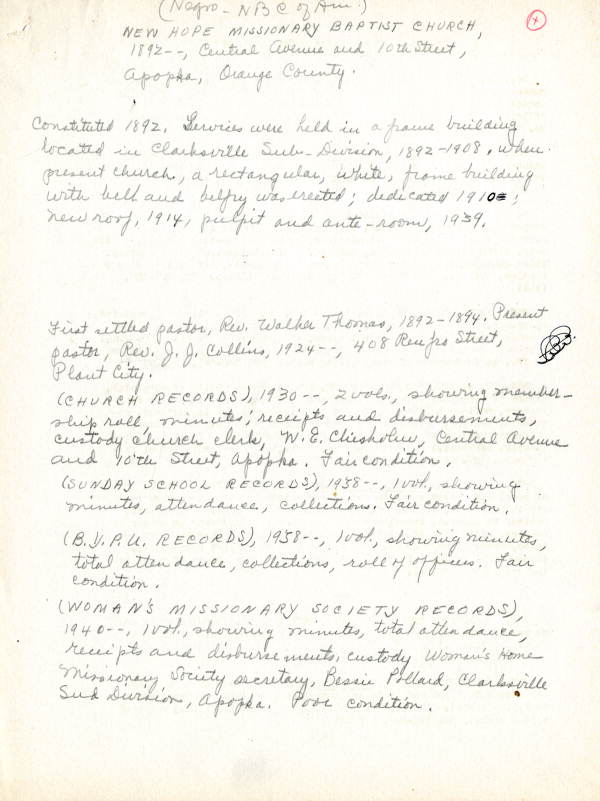 (Negro - NBC of Am.)
NEW HOPE MISSIONARY BAPTIST CHURCH,
1892--, Central Avenue and 10th Street,
Apopka, Orange County.
Constituted 1892. Services were held in a frame building
located in Clarksville Sub-Division, 1892-1908, when
present church, a rectangular, white, frame building
with bell and belfry was erected; dedicated 1910;
new roof, 1914, pulpit and ante-room, 1939.
First settled pastor, Rev. Walker Thomas, 1892-1894. Present
pastor, Rev. J. J. Collins, 1924--, 408 Renfro Street,
Plant City.
(CHURCH RECORDS), 1930--, 2 vols., showing member-
ship roll, minutes, receipts and disbursements,
custody church clerk, W. E. Chisholm, Central Avenue
and 10th Street, Apopka. Fair condition.
(SUNDAY SCHOOL RECORDS), 1938--, 1 vol., showing
minutes, attendance, collections. Fair condition.
(B.Y.P.U. RECORDS), 1938--, 1 vol., showing minutes,
total attendance, collections, roll of officers. Fair
condition.
(WOMAN'S MISSIONARY SOCIETY RECORDS),
1940--, 1 vol., showing minutes, total attendance,
receipts and disbursements, custody Woman's Home
Missionary Society secretary, Bessie Pollard, Clarksville
Sub Division, Apopka. Poor condition.